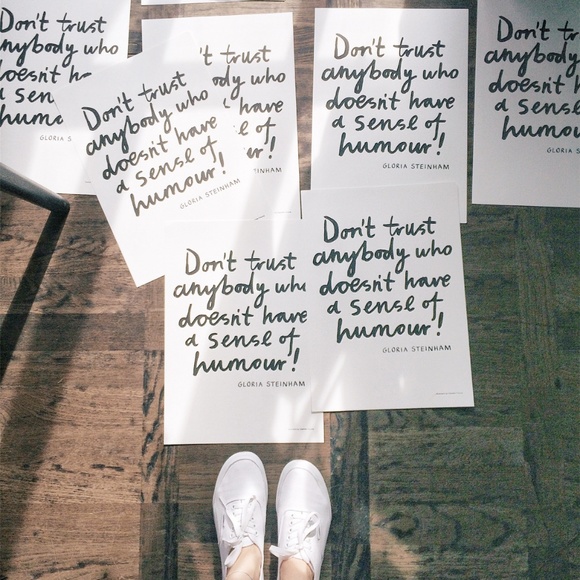 Don't trust
anybody who
doesn't h
a sen
hum
GLORIA S
't trust
dy who
have
e of
ur!
EINHAM
Don't trust
anybody who
doesn't have
a sense of
humour!
GLORIA STEINHAM
Don't trust
anybody who
doesn't have
a sense of
humour!
GLORIA STEINHAM
Don't t
anybody
doesn't h
a sens
humou
GLORIA
Don't trust
anybody wh
doesn't have
a sense of
humour!
GLORIA STEINHAM
Don't trust
anybody who
doesn't have
a sense of
humour!
GLORIA STEINHAM